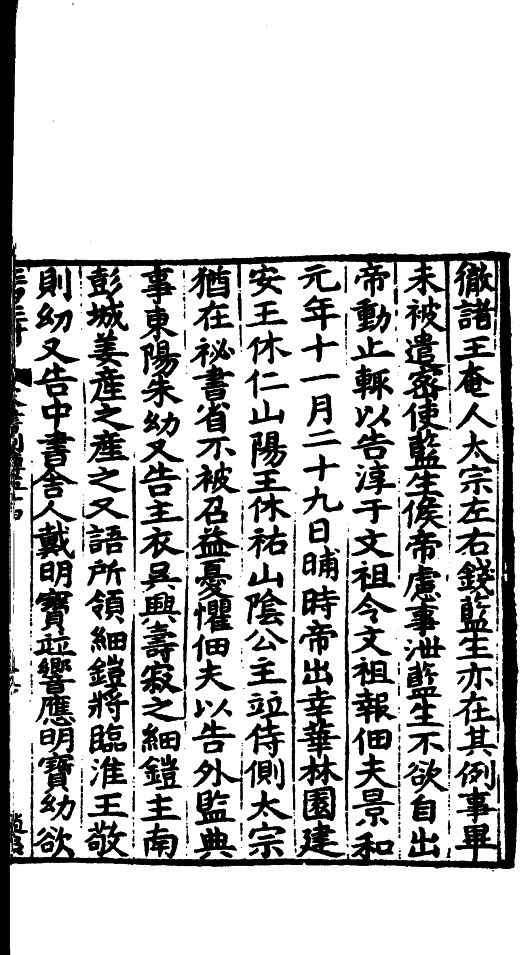 徹諸王奄人太宗左右錢藍生亦在其例事畢
未被遣密使藍生候帝慮事泄藍生不欲自出
帝動止輒以告淳于文祖令文祖報佃夫景和
元年十一月二十九日晡時帝出幸華林園建
安王休仁山陽王休祐山陰公主竝侍側太宗
猶在祕書省不被召益憂懼佃夫以告外監典
事東陽朱幼又告主衣吳興壽寂之細鎧主南
彭城姜産之産之又語所領細鎧將臨淮王敬
則幼又告中書舍人戴明寶竝響應明寶幼欲